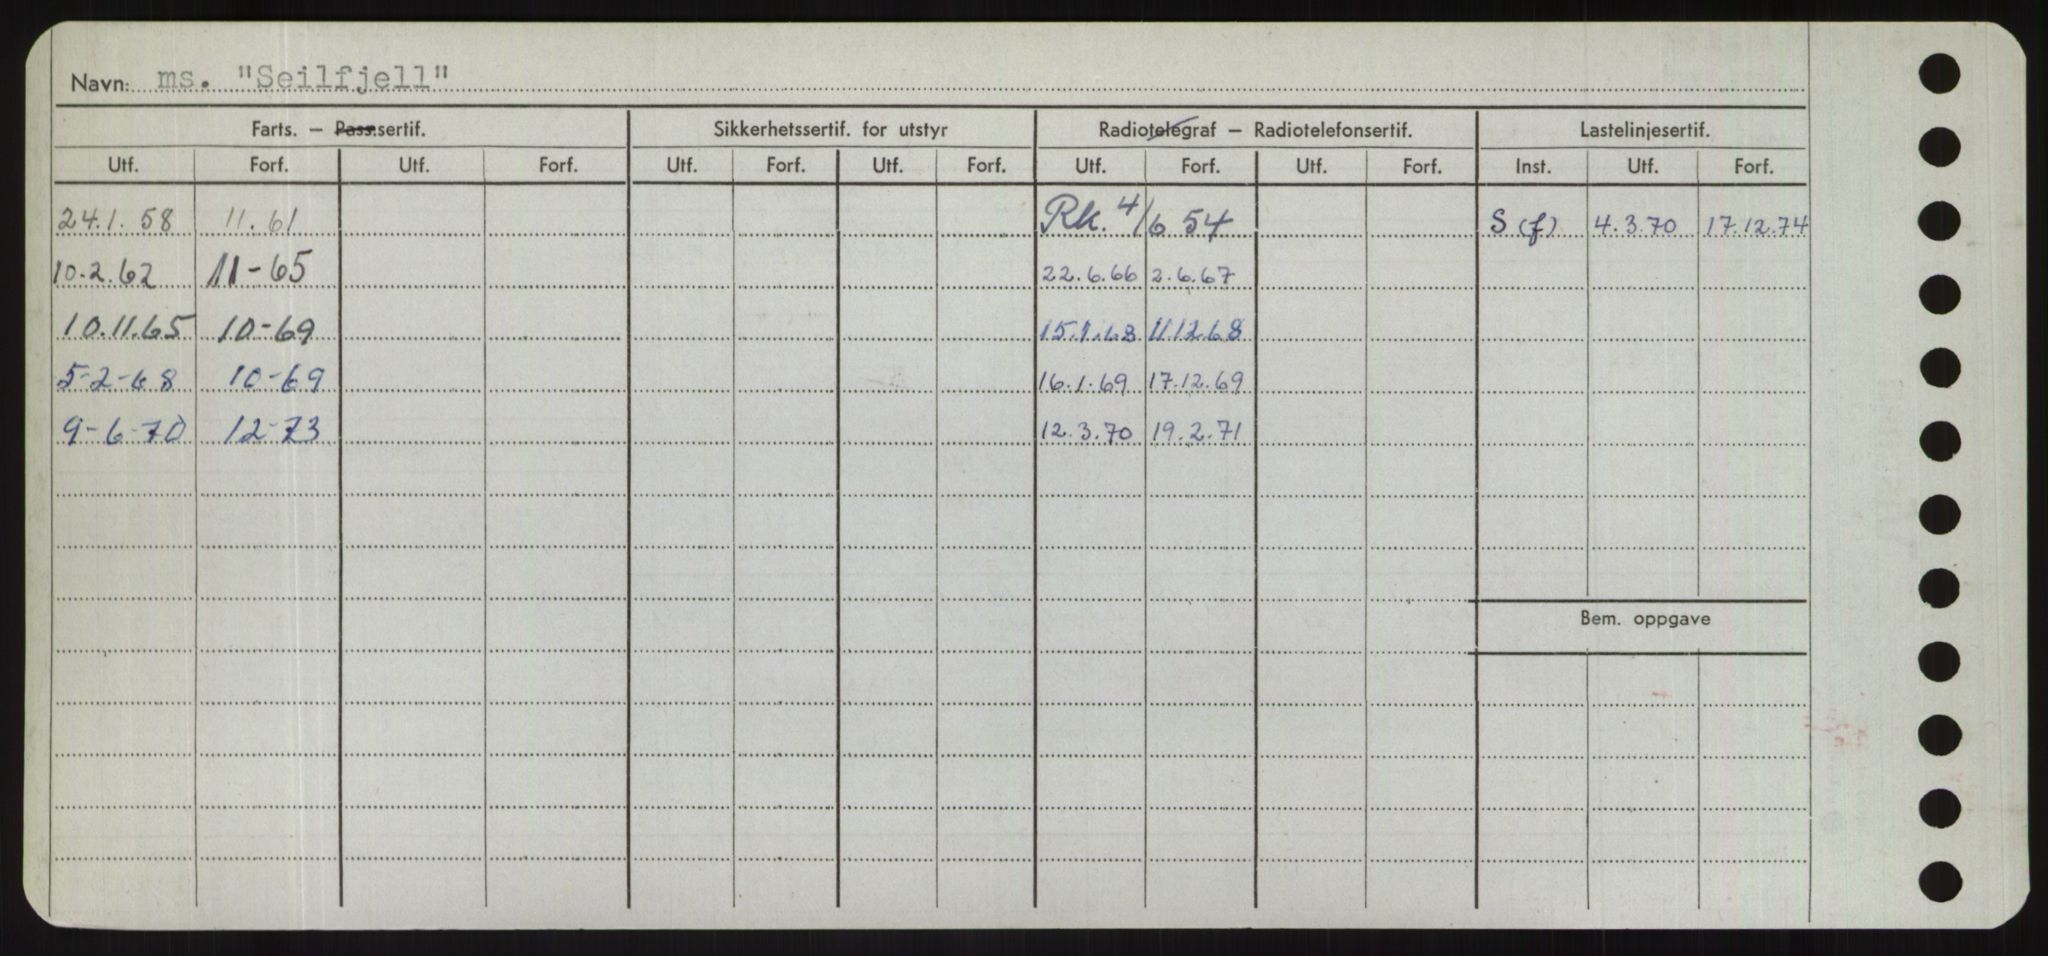 Navn: ms. "Seilfjell"
Farts. – Pass.sertif. Sikkerhetssertif. for utstyr Radiotelegraf – Radiotelefonsertif. Lastelinjesertif.
Utf. Forf. Utf. Forf. Utf. Forf. Utf. Forf. Utf. Forf. Utf. Forf. Inst. Utf. Forf.
24.1.58 11.61 Rk. 4/6 54 S (f) 4.3.70 17.12.74
10.2.62 11-65 22.6.66 2.6.67
10.11.65 10-69 15.1.68 11.12.68
5-2-68 10-69 16.1.69 17.12.69
9-6-70 12-73 12.3.70 19.2.71
Bem. oppgave